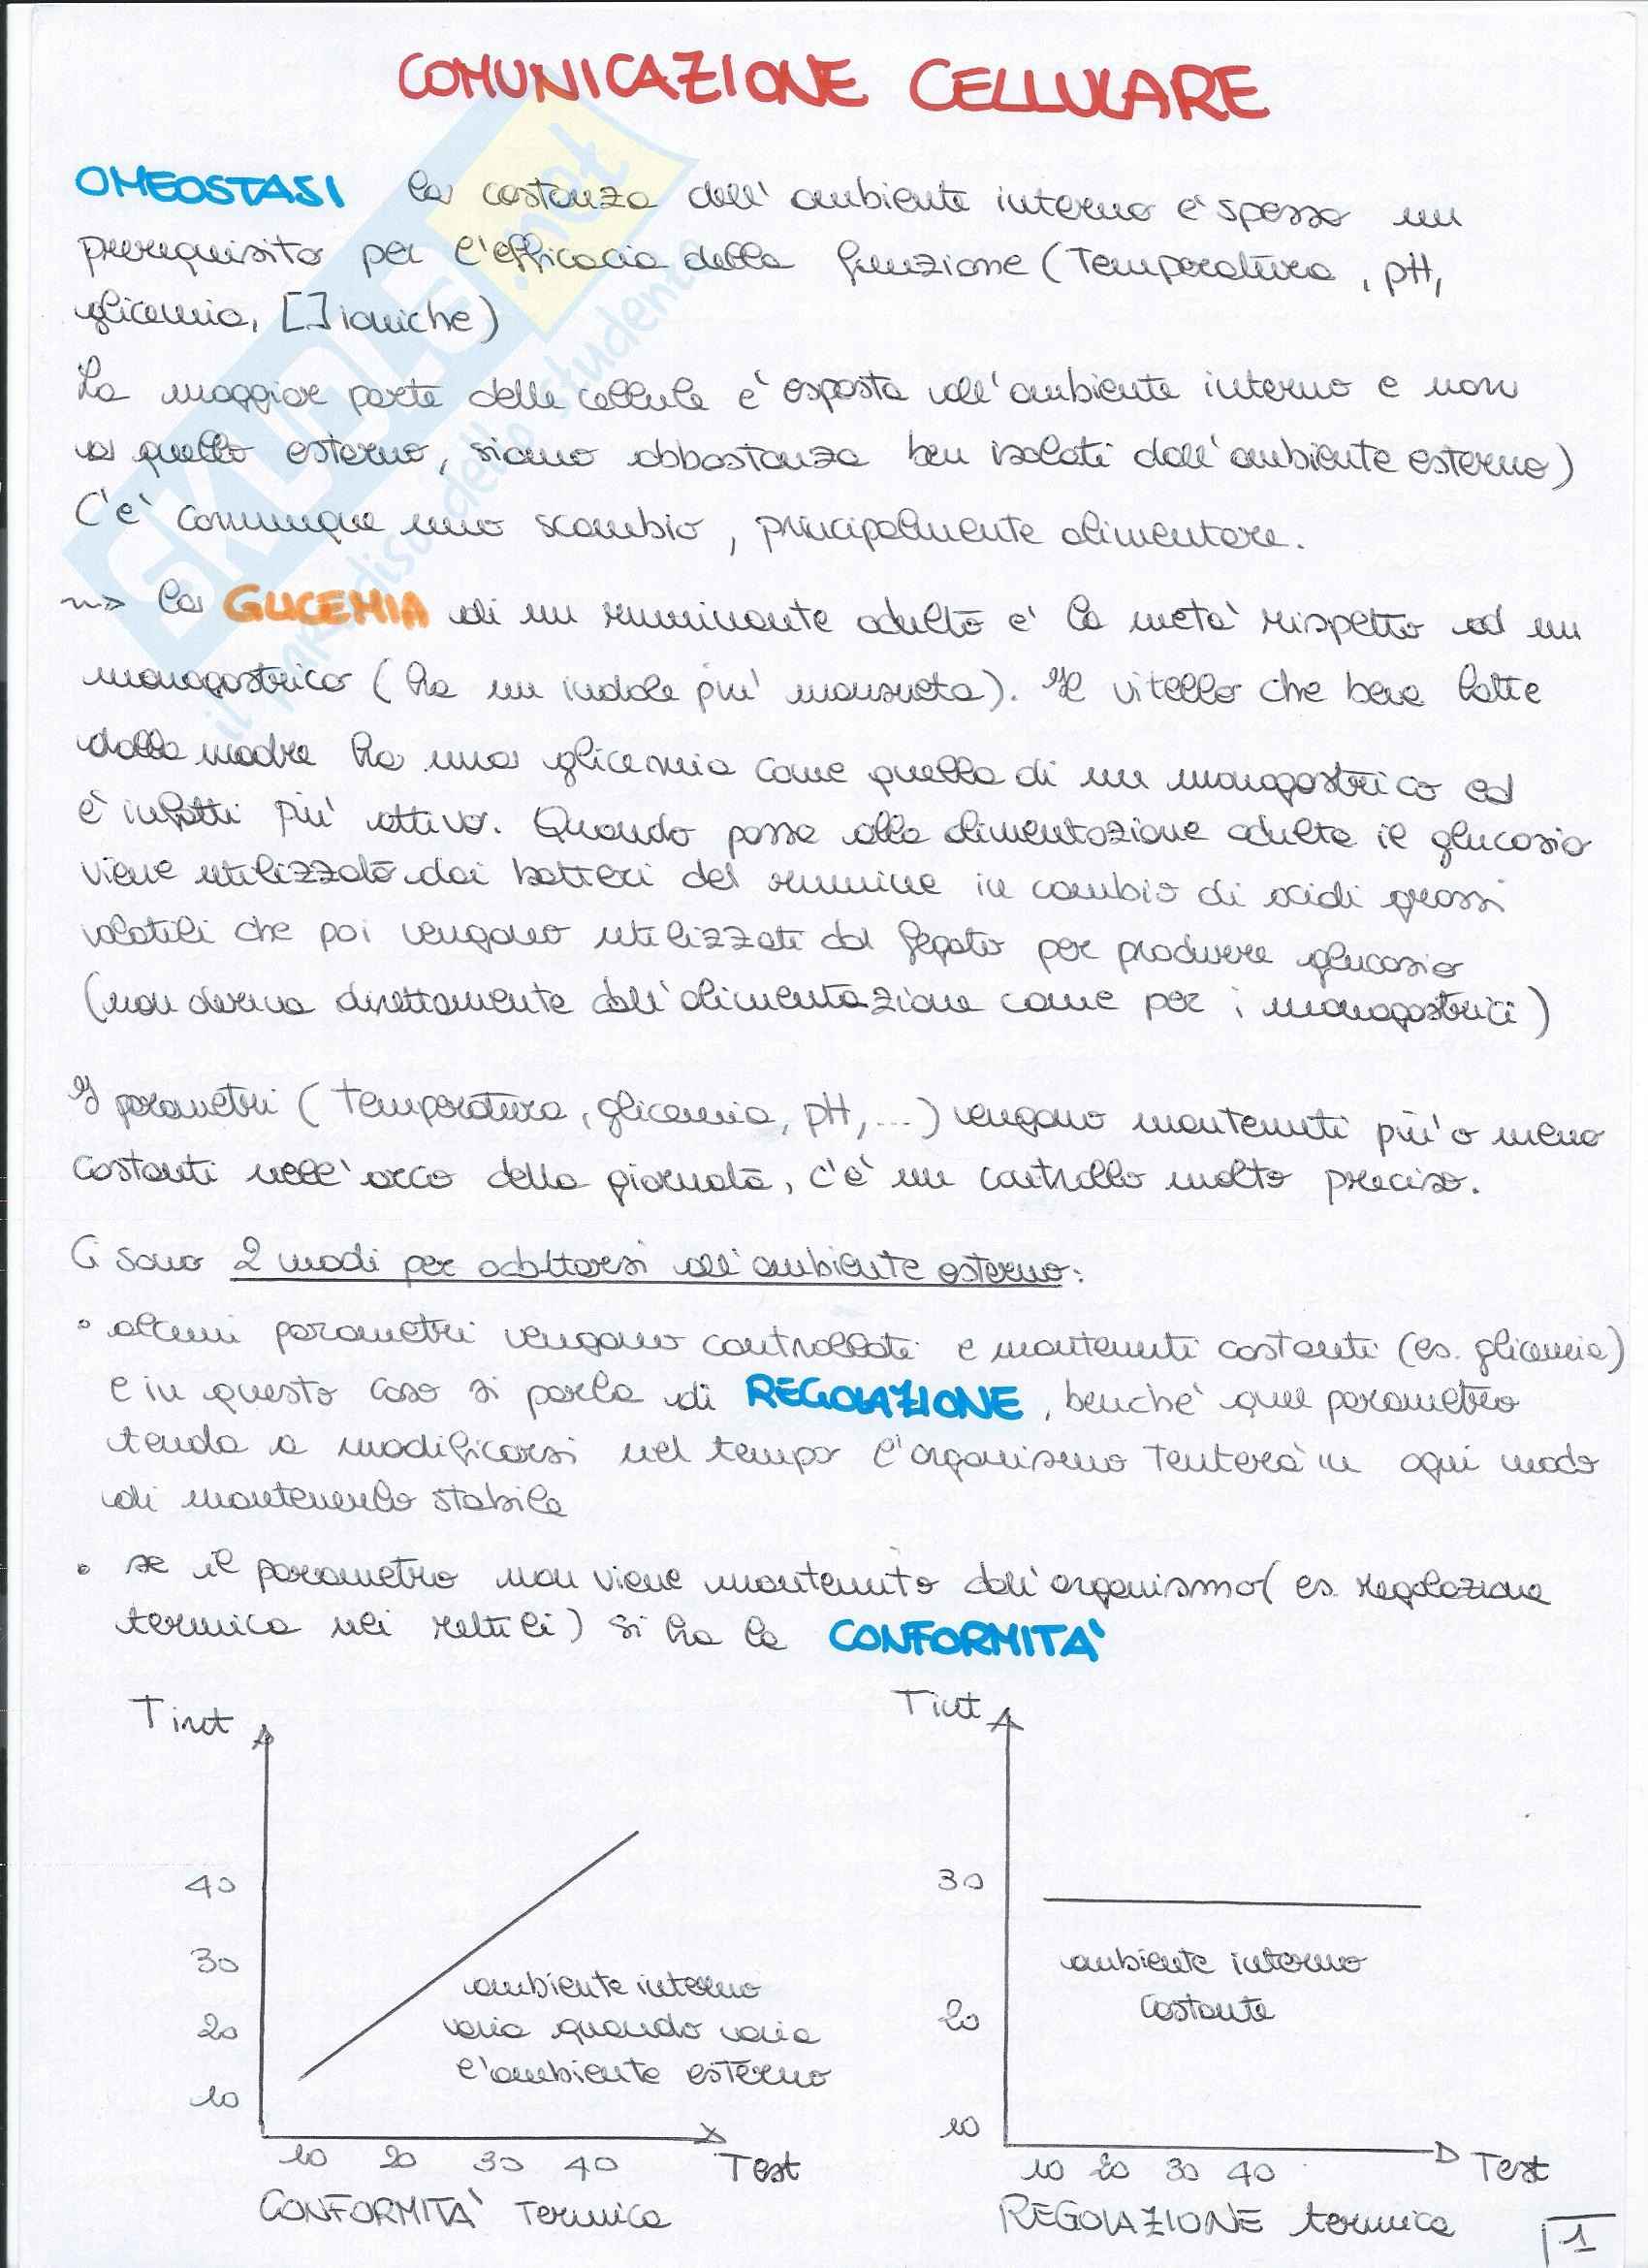 COMUNICAZIONE CELLULARE
OMEOSTASI la costanza dell'ambiente interno e' spesso un
prerequisito per l'efficacia della funzione (Temperatura, pH,
glicemia, [] ioniche)
La maggior parte delle cellule e' esposta all'ambiente interno e non
a quello esterno, siamo abbastanza ben isolati dall'ambiente esterno)
C'e' comunque uno scambio, principalmente alimentare.
~> la GLICEMIA di un ruminante adulto e' la meta' rispetto ad un
monogastrico (ha un indole piu' mansueta). Il vitello che beve latte
dalla madre ha una glicemia come quella di un monogastrico ed
e' infatti piu' attivo. Quando passa alla alimentazione adulta il glucosio
viene utilizzato dai batteri del rumine in cambio di acidi grassi
volatili che poi vengono utilizzati dal fegato per produrre glucosio
(non deriva direttamente dall'alimentazione come per i monogastrici)
I parametri (temperatura, glicemia, pH, ...) vengono mantenuti piu' o meno
costanti nell'arco della giornata, c'e' un controllo molto preciso.
Ci sono 2 modi per adattarsi all'ambiente esterno:
• alcuni parametri vengono controllati e mantenuti costanti (es. glicemia)
e in questo caso si parla di REGOLAZIONE, benche' quel parametro
tenda a modificarsi nel tempo l'organismo tentera' in ogni modo
di mantenerlo stabile
• se il parametro non viene mantenuto dall'organismo (es. regolazione
termica nei rettili) si ha la CONFORMITA'
Tint
40
30
20
10
ambiente interno
varia quando varia
l'ambiente esterno
10 20 30 40 Test
CONFORMITA' Termica
Tint
30
20
10
ambiente interno
costante
10 20 30 40 Test
REGOLAZIONE termica
1
SKUOLA.net
il paradiso dello studente